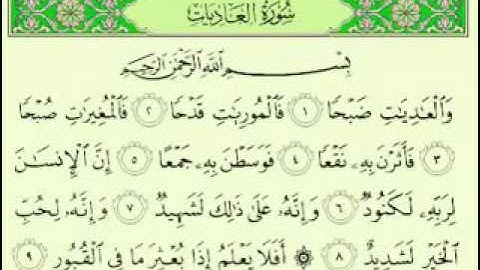 سُورَةُ العَادِيَات
بِسْمِ اللَّهِ الرَّحْمَٰنِ الرَّحِيمِ
وَالْعَادِيَاتِ ضَبْحًا ١ فَالْمُورِيَاتِ قَدْحًا ٢ فَالْمُغِيرَاتِ صُبْحًا
٣ فَأَثَرْنَ بِهِ نَقْعًا ٤ فَوَسَطْنَ بِهِ جَمْعًا ٥ إِنَّ الْإِنسَانَ
لِرَبِّهِ لَكَنُودٌ ٦ وَإِنَّهُ عَلَىٰ ذَالِكَ لَشَهِيدٌ ٧ وَإِنَّهُ لِحُبِّ
الْخَيْرِ لَشَدِيدٌ ٨ ۞ أَفَلَا يَعْلَمُ إِذَا بُعْثِرَ مَا فِي الْقُبُورِ ٩